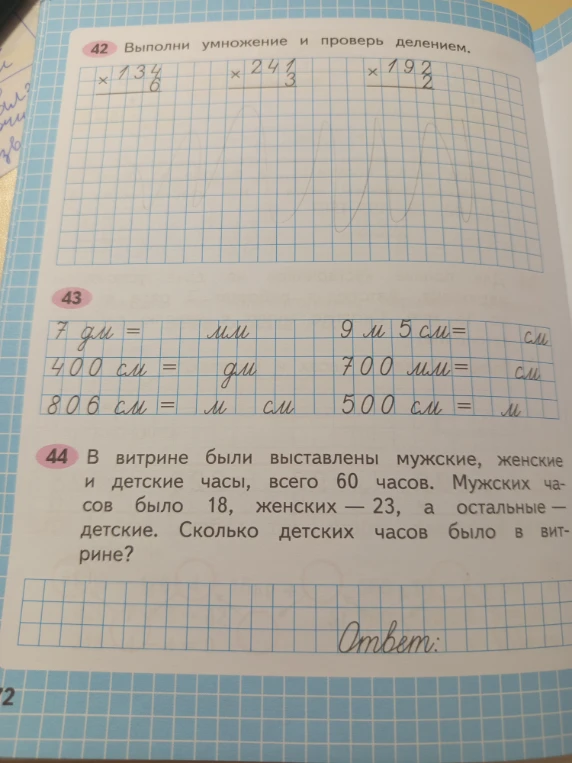 42 Выполни умножение и проверь делением.
× 134 × 241 × 192
6 3 2
43
7 дм = мм 9 м 5 см = см
400 см = дм 700 мм = см
806 см = м см 500 см = м
44 В витрине были выставлены мужские, женские
и детские часы, всего 60 часов. Мужских ча-
сов было 18, женских — 23, а остальные —
детские. Сколько детских часов было в вит-
рине?
Ответ:
72